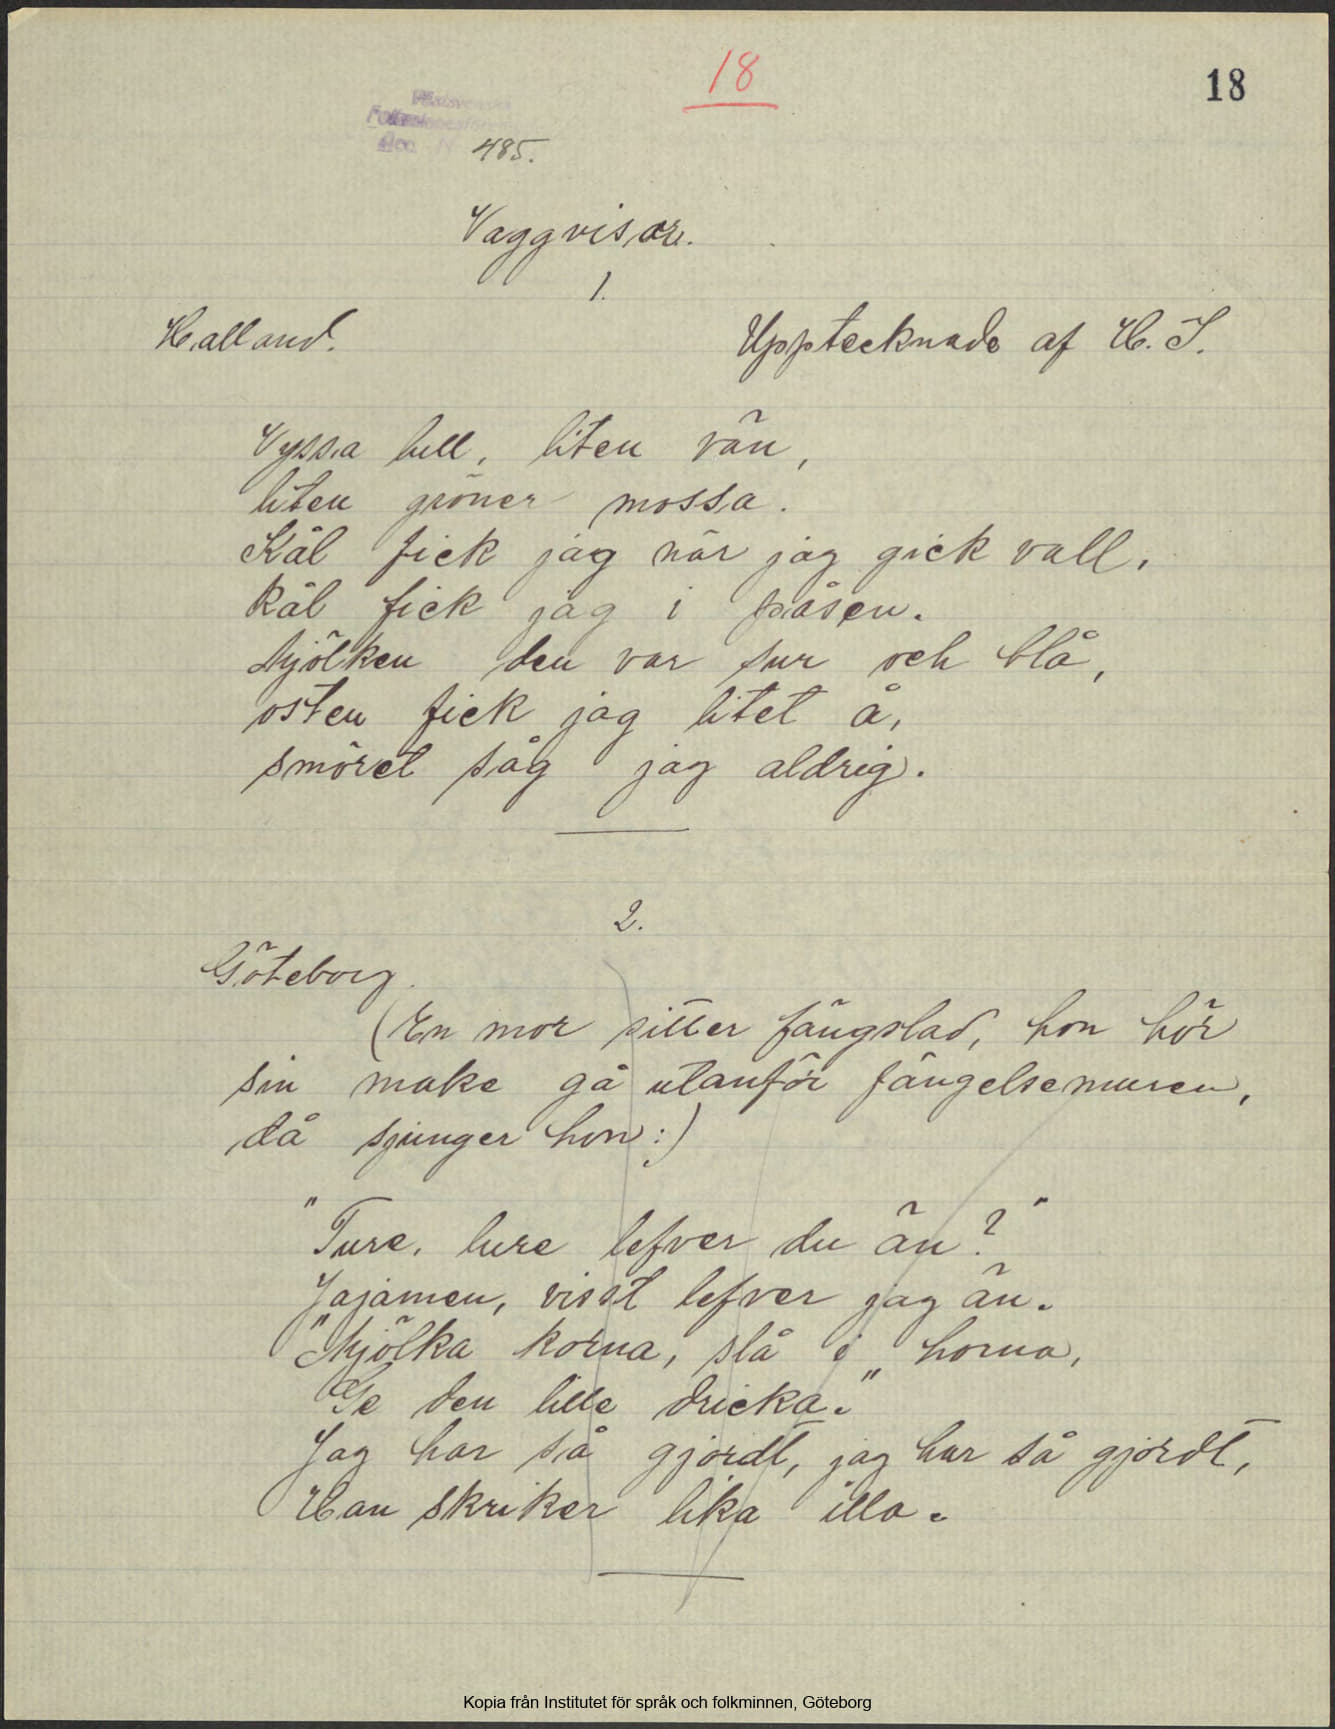 18
18
Västsvenska
Folkminnesföreningen
Acc. N
485.
Vaggvisor.
1.
Halland.
Upptecknade af H. I.
Vyssa lull, liten vän,
liten gröner mossa.
Kål fick jag när jag gick vall,
kål fick jag i påsen.
Mjölken den var sur och blå,
osten fick jag litet å,
smöret såg jag aldrig.
2.
Göteborg.
(En mor sitter fängslad, hon hör
sin make gå utanför fängelsemuren,
då sjunger hon:)
"Ture, lure lefver du än?"
Jajamen, visst lefver jag än.
"Mjölka korna, slå i horna,
Ge den lille dricka."
Jag har så gjordt, jag har så gjordt,
Han skriker lika illa.
Kopia från Institutet för språk och folkminnen, Göteborg